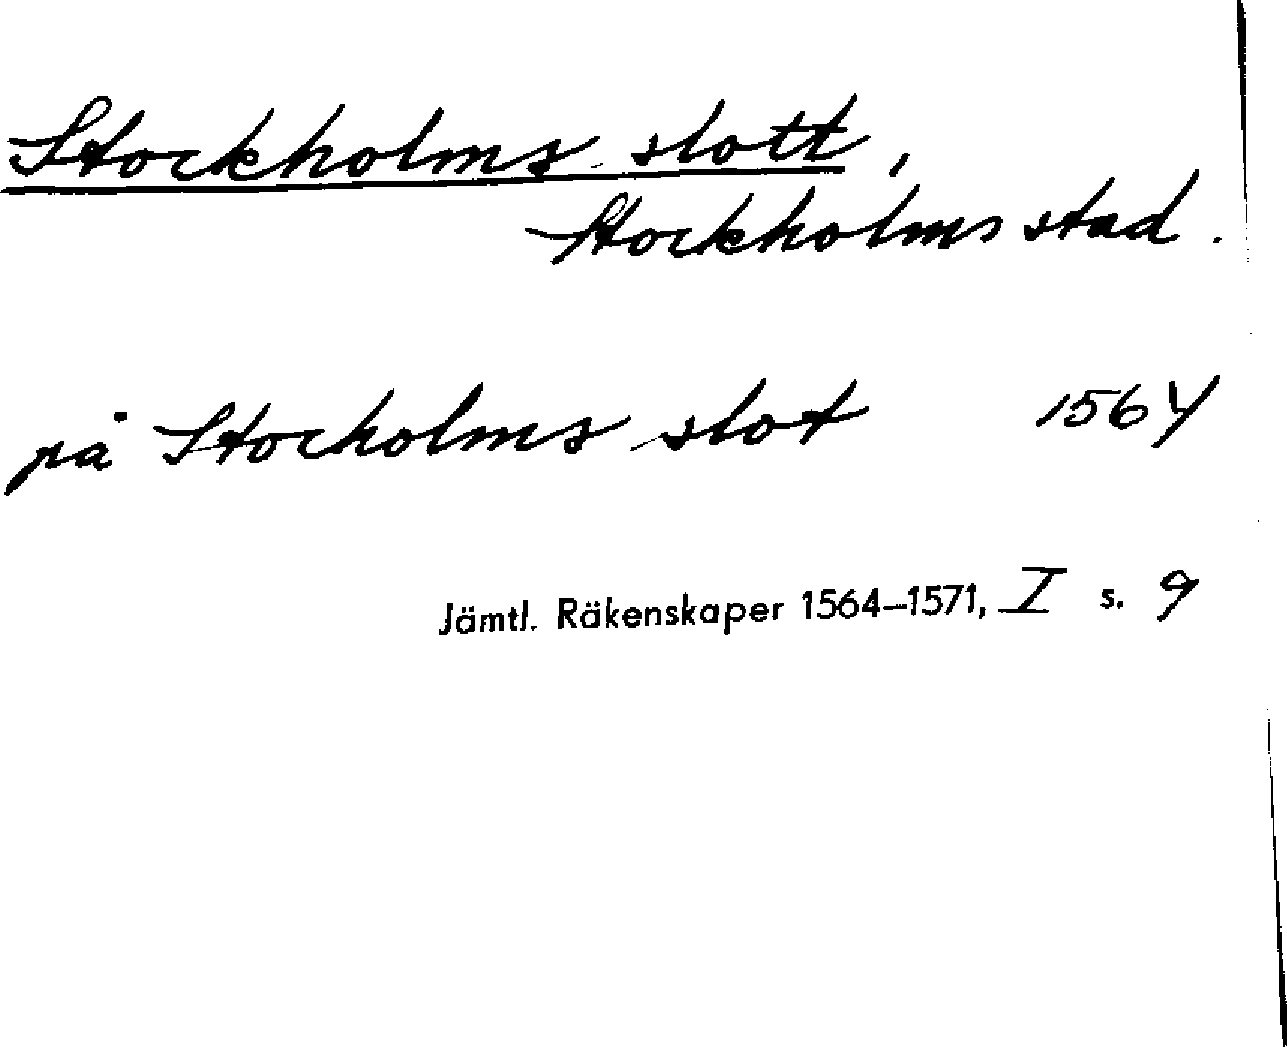 Stockholms slott,
Stockholms stad.
på Stocholms slot 1564
Jämtl. Räkenskaper 1564–1571, I s. 9